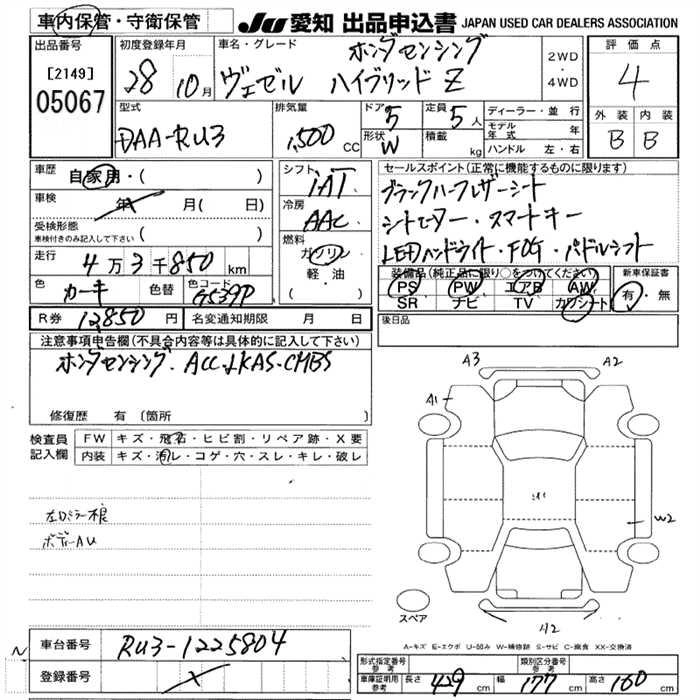 車内保管・守衛保管
JU 愛知 出品申込書 JAPAN USED CAR DEALERS ASSOCIATION
出品番号
[2149]
05067
初度登録年月
28 10月
車名・グレード
ホンダセンシング
ヴェゼル ハイブリッド Z
2WD
・
4WD
評価点
4
外装 内装
B B
型式
DAA-RU3
排気量
1,500 CC
ドア 5
形状 W
定員 5人
積載 kg
ディーラー・並行
モデル年式 年
ハンドル 左・右
車歴 自家用・( )
車検 年 月(日)
受検形態
車検付きのみ記入して下さい ( )
走行 4万3千850km
色 カーキ 色替 色コード G539P
R券 12,850円 名変通知期限 月 日
シフト
IAT
冷房
AAC
燃料
ガソリン
軽・油
セールスポイント(正常に機能するものに限ります)
ブラックハーフレザーシート
シートヒーター・スマートキー
LEDハンドライト・FOG・パドルシフト
装備品(純正品に限り○をつけてください)
PS PW エアB AW
SR ナビ TV カワシート
新車保証書
有・無
後日品
注意事項申告欄(不具合内容等は具体的に記入して下さい)
ホンダセンシング・ACC・LKAS・CMBS
修復歴 有 〔箇所 〕
検査員記入欄
FW キズ・飛石・ヒビ割・リペア跡・X要
内装 キズ・汚レ・コゲ・穴・スレ・キレ・破レ
左ロミラー根
ボディーAU
A3 A2
A1
W2
A2
スペア
A-キズ E-エクボ U-凹み W-補修跡 S-サビ C-腐食 XX-交換済
車台番号 RU3-1225804
登録番号
形式指定番号 参考
類別区分番号 参考
車庫証明用 参考 長さ 429 cm 幅 177 cm 高さ 160 cm